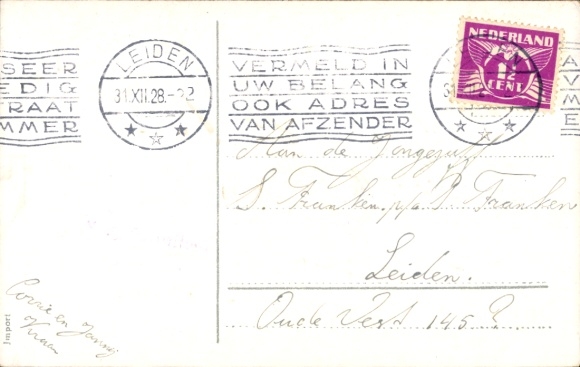 SEER
EDIG
RAAT
MMER
LEIDEN
31.XII.28.-22
VERMELD IN
UW BELANG
OOK ADRES
VAN AFZENDER
NEDERLAND
1½
CENT
Aan de
S. Franken p/a P. Franken
Leiden.
Oude Vest 145
Corrie en
Import